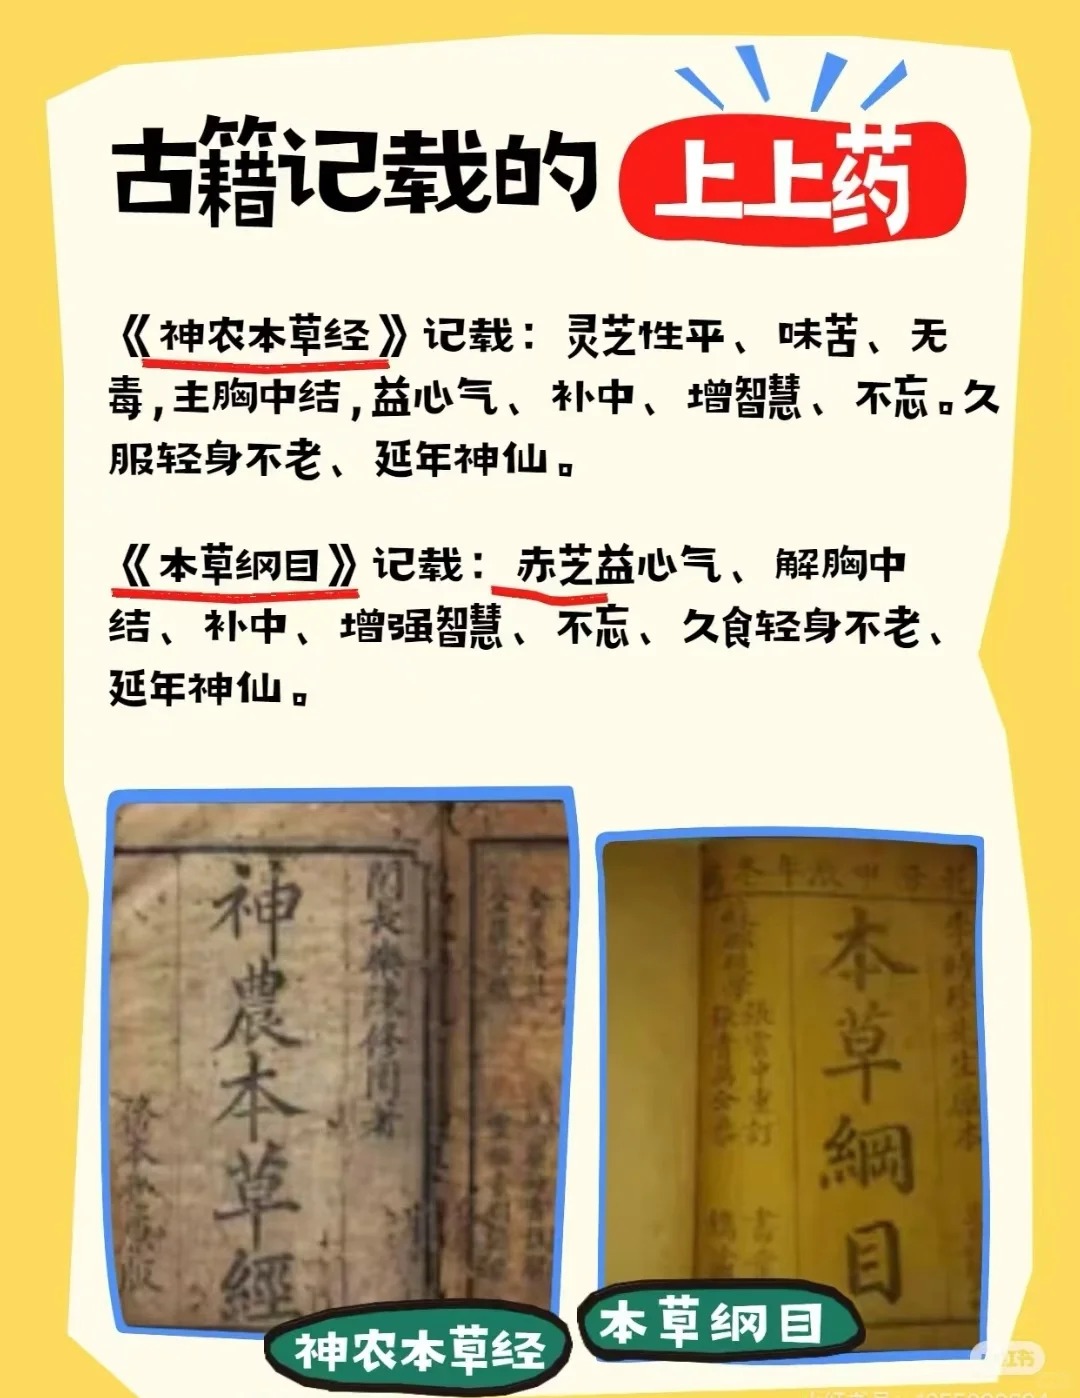 古籍记载的 上上药
《神农本草经》记载：灵芝性平、味苦、无
毒,主胸中结,益心气、补中、增智慧、不忘。久
服轻身不老、延年神仙。
《本草纲目》记载：赤芝益心气、解胸中
结、补中、增强智慧、不忘、久食轻身不老、
延年神仙。
閩長樂陳修園著
神農本草經
本草綱目
張雲中重訂
神农本草经
本草纲目